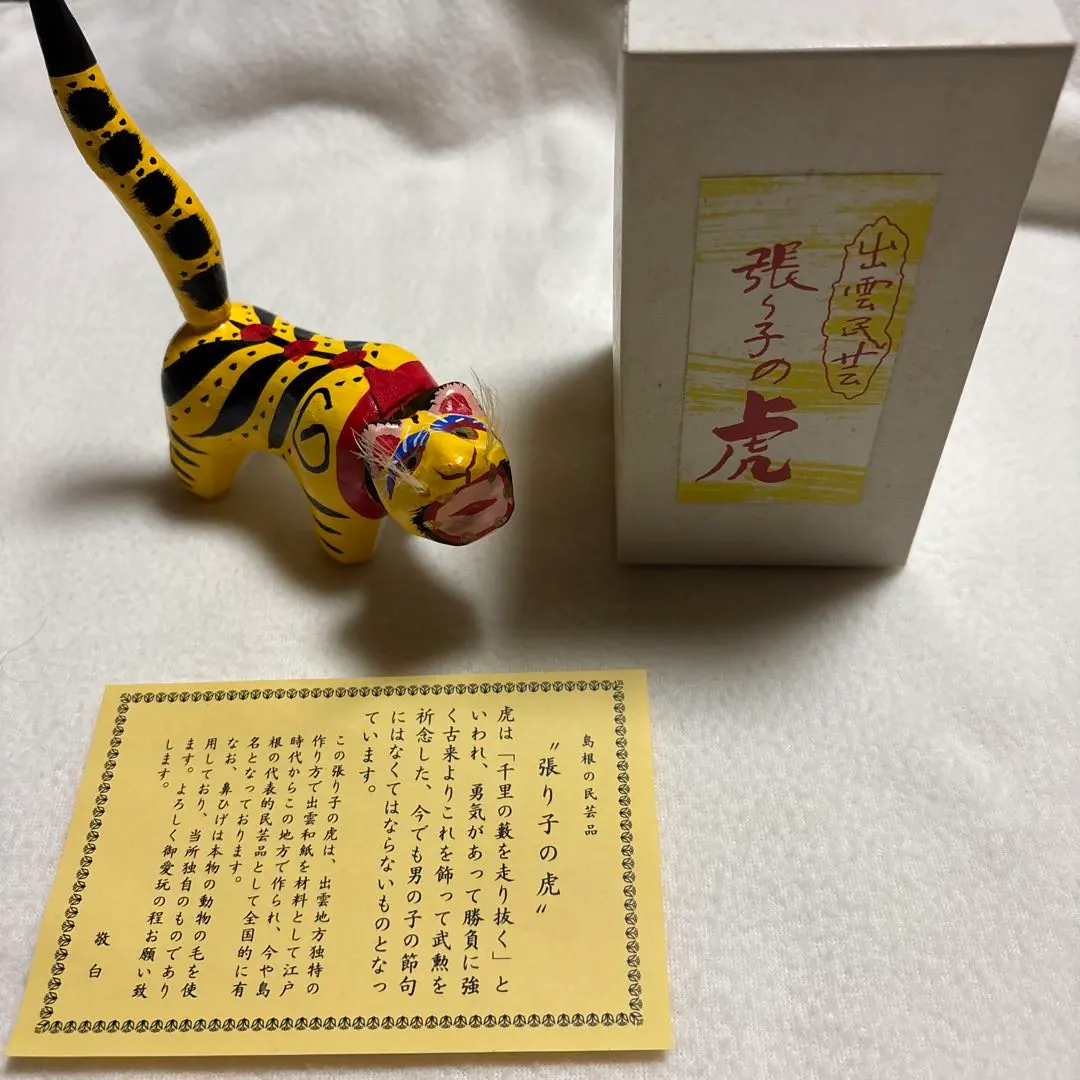 出雲民芸
張り子の
虎
島根の民芸品
〝張り子の虎〟
虎は「千里の藪を走り抜く」と
いわれ、勇気があって勝負に強
く古来よりこれを飾って武勲を
祈念した、今でも男の子の節句
にはなくてはならないものとなっ
ています。
この張り子の虎は、出雲地方独特の
作り方で出雲和紙を材料として江戸
時代からこの地方で作られ、今や島
根の代表的民芸品として全国的に有
名となっております。
なお、鼻ひげは本物の動物の毛を使
用しており、当所独自のものであり
ます。よろしく御愛玩の程お願い致
します。
敬白